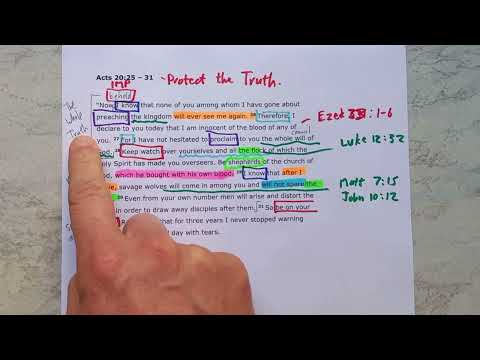 Acts 20:25 – 31 - Protect the Truth.
IMP
behold
"Now, I know that none of you among whom I have gone about
preaching the kingdom will ever see me again. 26 Therefore, I
declare to you today that I am innocent of the blood of any of
you. 27 For I have not hesitated to proclaim to you the whole will of
God. 28 Keep watch over yourselves and all the flock of which the
Holy Spirit has made you overseers. Be shepherds of the church of
God, which he bought with his own blood. I know that after I
savage wolves will come in among you and will not spare the
Even from your own number men will arise and distort the
in order to draw away disciples after them. 31 So be on your
that for three years I never stopped warning
day with tears.
The
Whole
Truth
Ezek :1-6
Luke 12:32
Matt 7:15
John 10:12